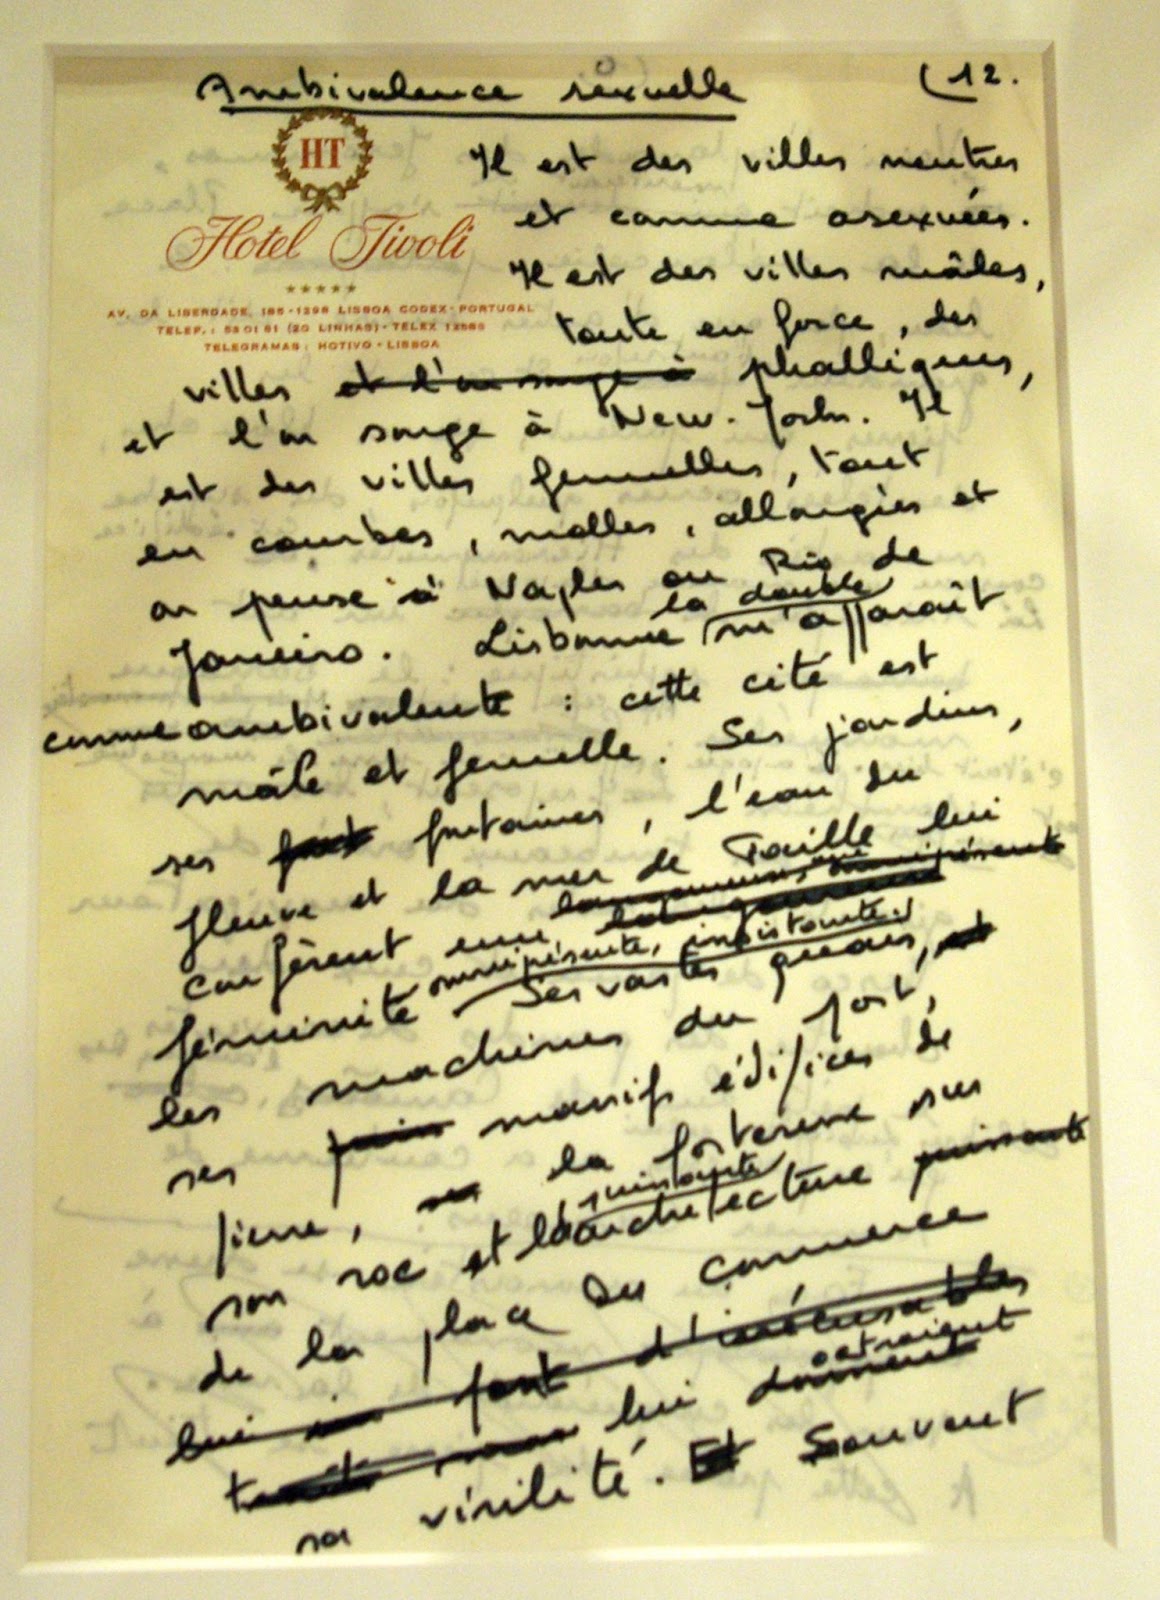 Ambivalence sexuelle
(12.
HT
Hotel Tivoli
AV. DA LIBERDADE, 185-1298 LISBOA CODEX-PORTUGAL
TELEF.: 53 01 81 (20 LINHAS)-TELEX 12588
TELEGRAMAS: HOTIVO-LISBOA
Il est des villes neutres
et comme asexuées.
Il est des villes mâles,
toute en force, des
villes et l'on songe à phalliques,
et l'on songe à New-York. Il
est des villes femelles, tout
en courbes, molles, allongées et
on pense à Naples ou Rio de
Janeiro. Lisbonne la double m'apparaît
comme ambivalente : cette cité est
mâle et femelle. Ses jardins,
ses fontaines, l'eau du
fleuve et la mer de Paille lui
confèrent une
féminité omniprésente, insistante.
Ses vastes quais, et
les machines du port,
ses massifs édifices de
pierre, la forteresse sur
son roc et la puissante architecture puissante
de la place du commerce
lui font d'irrécusables
lui donnent octroient
sa virilité. Et Souvent